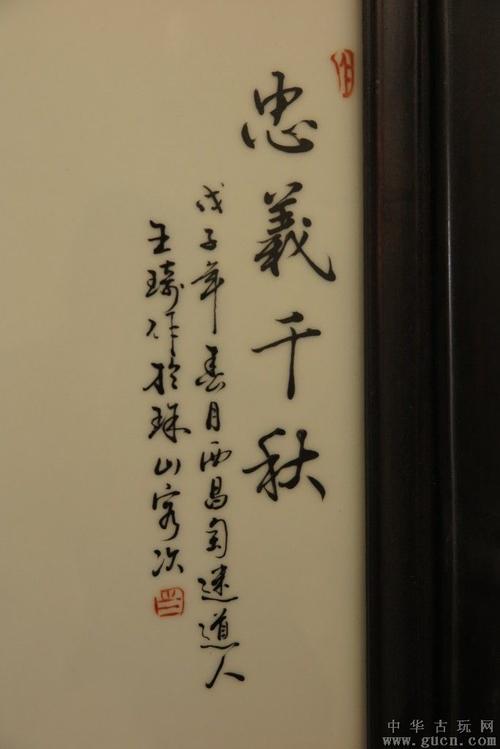 忠義千秋
戊子年春月西昌匋迷道人
王琦作於珠山客次
中华古玩网
www.gucn.com